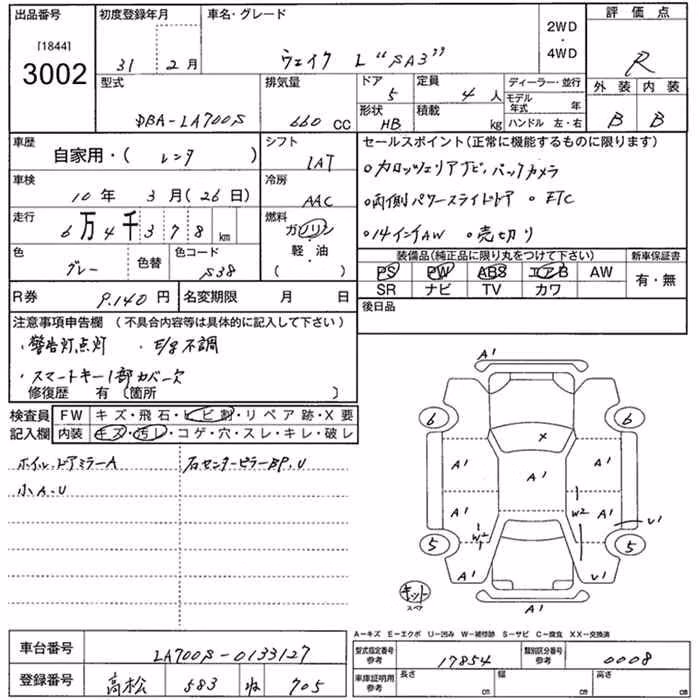 出品番号
[1844]
3002
初度登録年月
31 年 2月
車名・グレード
ウェイク L "SAⅢ"
2WD
・
4WD
評価点
R
外装 内装
B B
型式
DBA-LA700S
排気量
660 CC
ドア
5
定員
4 人
形状
HB
積載
kg
ディーラー・並行
モデル年式 年
ハンドル 左・右
車歴
自家用・( レンタ )
シフト
IAT
車検
10 年 3 月(26 日)
冷房
AAC
走行
6 万 4 千 3 7 8 km
燃料
ガソリン
・
軽・油
( )
色
グレー
色替
色コード
S38
R券 9.140 円
名変期限 月 日
セールスポイント(正常に機能するものに限ります)
・カロッツェリアナビ、バックカメラ
・両側パワースライドドア ・ETC
・14インチAW ・売切り
装備品(純正品に限り丸をつけて下さい)
新車保証書
PS PW ABS エアB AW
SR ナビ TV カワ
有・無
後日品
注意事項申告欄(不具合内容等は具体的に記入して下さい)
・警告灯点灯 ・E/g不調
・スマートキー1部カバー欠
修復歴 有(箇所 )
検査員
記入欄
FW キズ・飛石・ヒビ割・リペア跡・X要
内装 キズ・汚レ・コゲ・穴・スレ・キレ・破レ
ホイル、ドアミラーA
石センターピラーBP、U
小A、U
A1
6 6
X
A1 A1 A1
A1 W2 W2 A1 U1
5 5
A1 U1
キット
スペア
A1
A−キズ E−エクボ U−凹み W−補修跡 S−サビ C−腐食 XX−交換済
車台番号
LA700S-0133127
登録番号
高松 583 ね 705
型式指定番号
参考
17854
類別区分番号
参考
0008
車庫証明用
参考
長さ cm
幅 cm
高さ cm